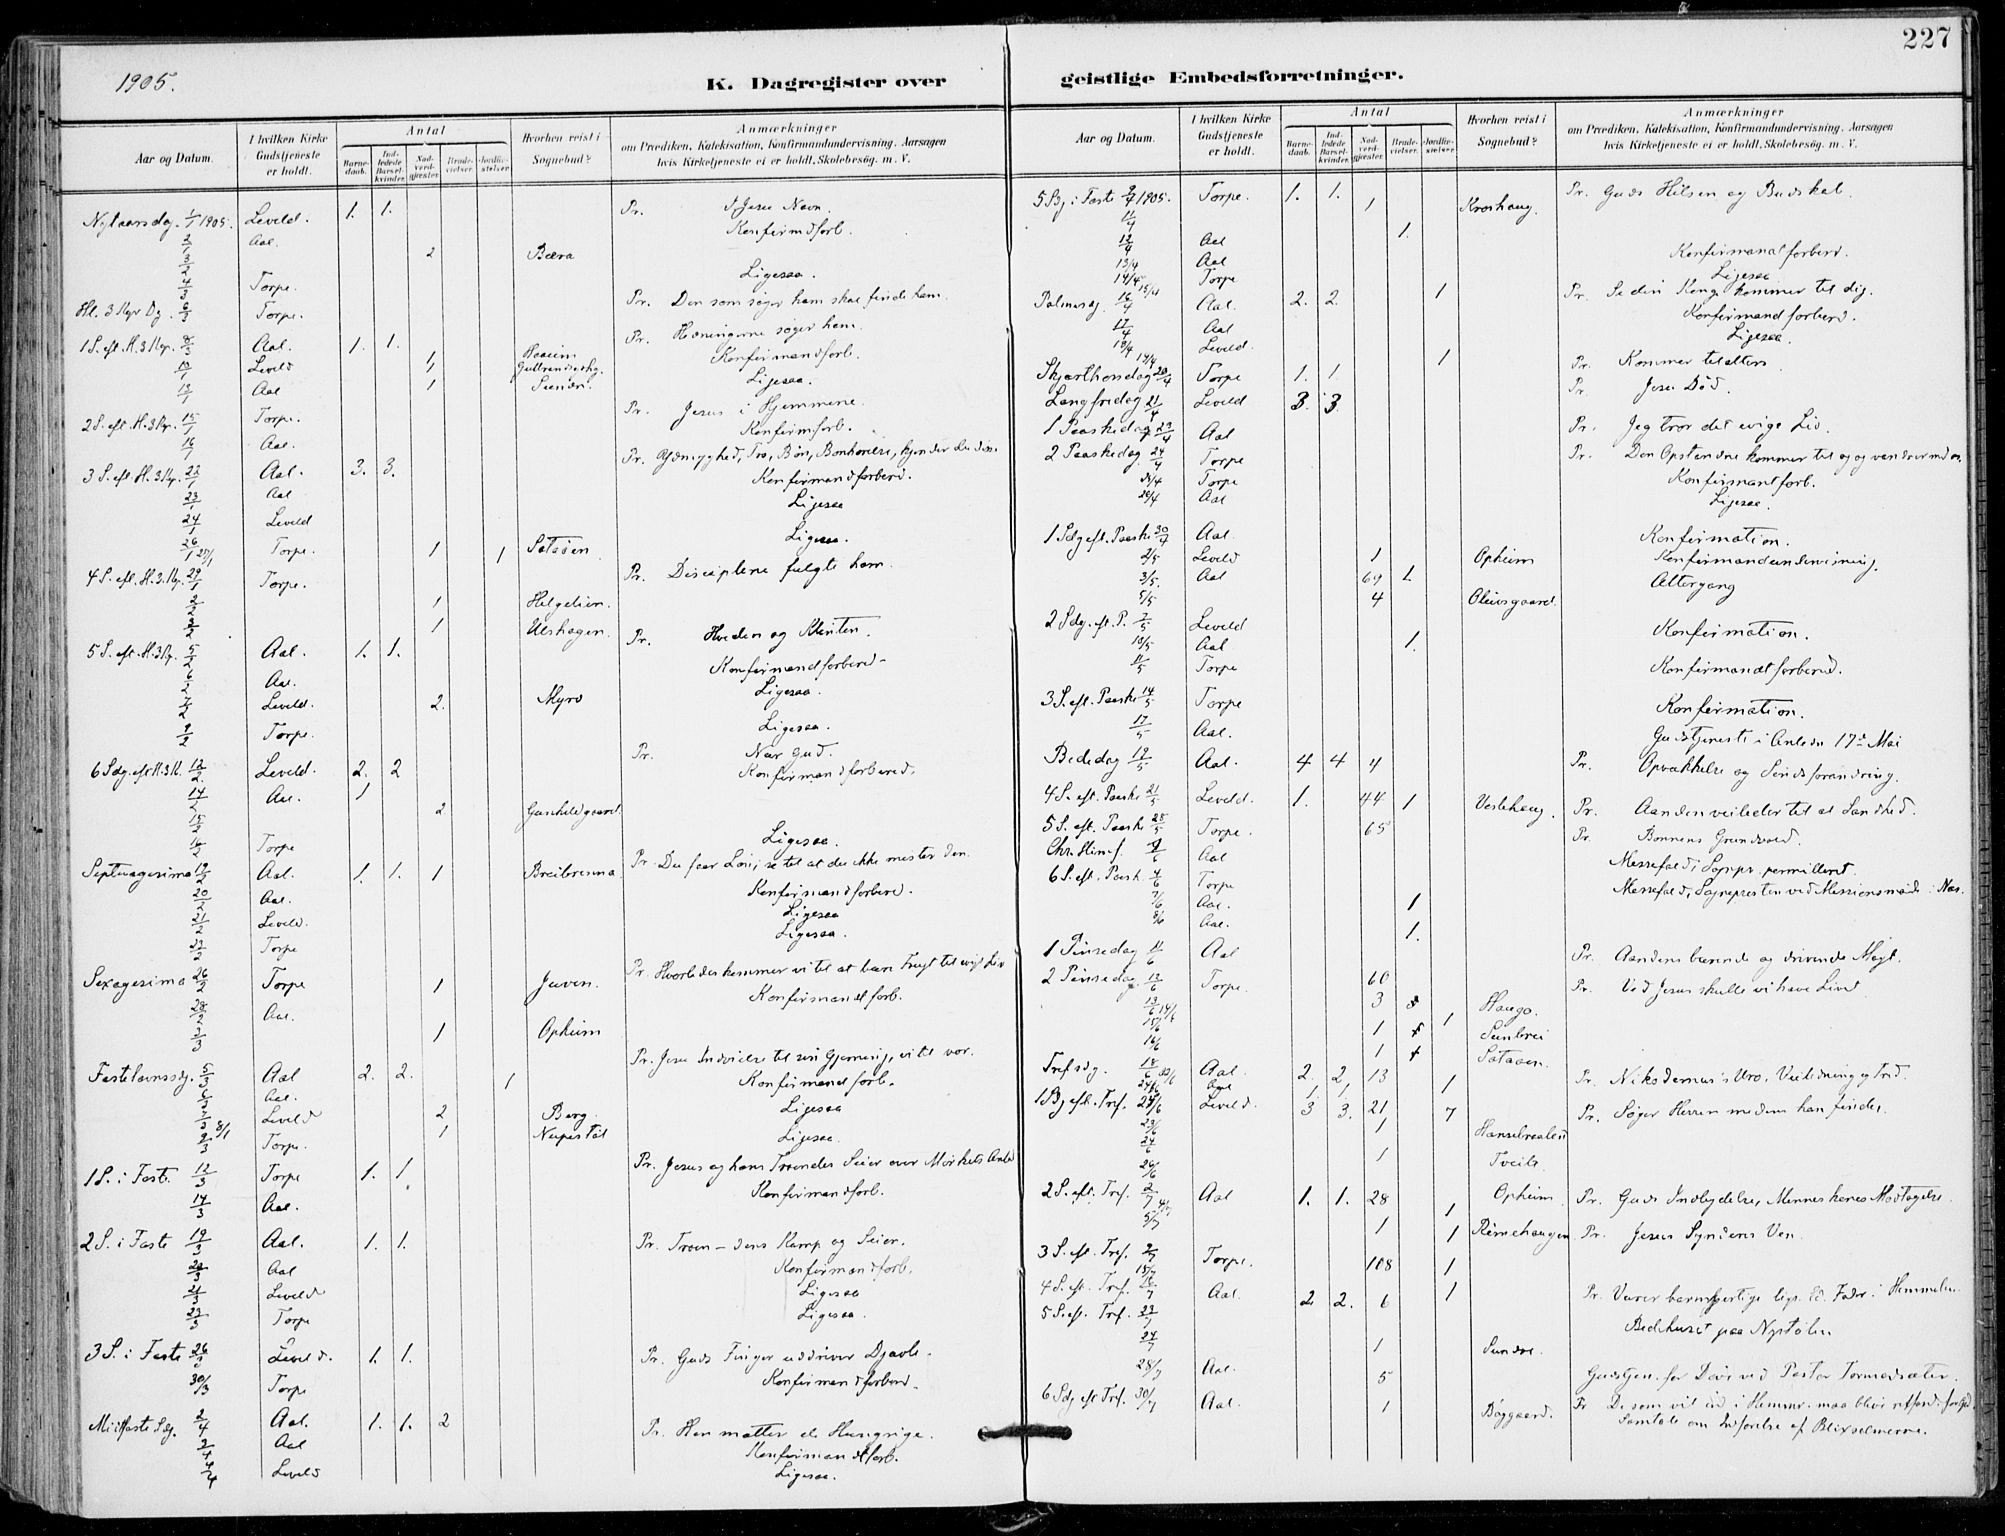 227
1905.
K. Dagregister over
Aar og Datum.
I hvilken Kirke Gudstjeneste er holdt.
Antal
Barnedaab.
Indledede Barselkvinder.
Nadverdgjæster.
Brudevielser.
Jordfæstelser.
Hvorhen reist i Sognebud?
Anmærkninger
om Prædiken, Katekisation, Konfirmandundervisning, Aarsagen
hvis Kirketjeneste ei er holdt, Skolebesøg. m. V.
Nytaarsdag. 1/1 1905. Leveld. 1. 1. Pr. I Jesu Navn.
2/1 Aal. Konfirmdforb.
2 Bæra
Torpe. Ligesaa.
Hl. 3 Kgr Dg. Torpe. Pr. Den som søger ham skal finde ham.
1 S. eft. H. 3 Kgr. 8 Aal. 1. 1. Pr. Hedningerne søger ham.
Leveld 1 Konfirmandforb.
Aal 1 Ligesaa.
2 S. eft. H. 3 Kgr. 15/1 Torpe. Pr. Jesus i Hjemmene.
16/1 Aal. Konfirmforb.
3 S. eft. H. 3 Kgr. 22/1 Aal. 3. 3. Pr. Ydmyghed, Tro, Bøn, Bønhørelse, kjender du disse
23/1 Aal Konfirmandforbered.
24/1 Leveld Ligesaa
26/1 Torpe. 1 1 Sataøen Ligesaa.
4 S. eft. H. 3. Kgr. 29/1 Torpe. Pr. Disciplene fulgte ham.
2/2 1 Helgelien.
3/2 1 Ulshagen.
5 S. eft. H. 3 Kg. 5/2 Aal. 1. 1. Pr. Hveden og Klinten.
6/2 Aal. Konfirmandforbered-
7/2 Leveld. 2. Myro Ligesaa.
9/2 Torpe. Ligesaa.
6 Sdg. eft H. 3 K. 12/2 Leveld. 2. 2 Pr. Nær Gud.
14/2 Aal. 1 Konfirmandforbered.
15/2 2 Gunhildgaard.
16/2 Torpe Ligesaa.
Septuagesima 19/2 Aal. 1. 1. 1 Breibrenna. Pr. Du faar Løn; se til at du ikke mister den.
20/2 Aal. Konfirmandforbered.
21/2 Leveld. Ligesaa
23/2 Torpe Ligesaa.
Sexagesima 26/2 Torpe 1 Juven. Pr. Hvorledes kommer vi til at bære Frugt til evigt Liv
28/2 Aal. Konfirmandforb.
3/3 1 Opheim
Fastelavnssdg. 5/3 Aal 2. 2. 1 Pr. Jesu Indvielse til sin Gjerning, vi til vor.
6/3 Aal. Konfirmandforb.
7/3 8/ Leveld 2 Berg. Ligesaa
9/3 Torpe. 1 Nupestøl Ligesaa.
1 S. i Faste. 12/3 Torpe 1. 1. Pr. Jesus og hans Troendes Seier over Mørkets Aand
14/3 Aal. Konfirmandforb.
2 S. i Faste 19/3 Aal. 1. 1. Pr. Troen - dens Kamp og Seier.
20/3 Aal Konfirmandforb.
21/3 Leveld Ligesaa
23/3 Torpe Ligesaa.
3 S. i Faste 26/3 Leveld. 1. 1. Pr. Guds Finger uddriver Djævle.
30/3 Torpe Konfirmandforbered.
Midfaste Sdg. 2/4 Aal. 1. 1. 2 Pr. Han mætter de Hungrige.
3/4 Aal Konfirmandforb.
4/4 Leveld Ligesaa.
geistlige Embedsforretninger.
Aar og Datum.
I hvilken Kirke Gudstjeneste er holdt.
Antal
Barnedaab.
Indledede Barselkvinder.
Nadverdgjæster.
Brudevielser.
Jordfæstelser.
Hvorhen reist i Sognebud?
Anmærkninger
om Prædiken, Katekisation, Konfirmandundervisning, Aarsagen
hvis Kirketjeneste ei er holdt, Skolebesøg. m. V.
5 Sg. i Faste 9/4 1905. Torpe. 1. 1. Pr. Guds Hilsen og Budskab.
11/4 1 Kroshaug.
12/4 Aal 1.
13/4 Aal Konfirmand forbered.
14/4 15/4 Torpe Ligesaa
Palmesdg. 16/4 Aal. 2. 2 1 Pr. Se din Konge kommer til dig.
17/4 Aal Konfirmand forbered.
18/4 Leveld. Ligesaa.
19/4 1
Skjærthorsdag 20/4 Torpe 1. 1 Pr. Kommer til alters
Langfredag 21/4 Leveld 3. 3. Pr. Jesu Død.
1 Paaskedag 23/4 Aal Pr. Jeg tror det evige Liv.
2 Paaskedag 24/4 Torpe Pr. Den Opstandne kommer til og og vandrer med os.
Torpe Konfirmantforb.
Aal Ligesaa.
1 Sdg eft. Paaske 30/4 Aal. Konfirmation.
2/5 Leveld 1 Opheim Konfirmandundervisning.
3/5. Aal 69 1. Altergang
5/5 4 Oleivsgaard.
2 Sdg. eft. P. 7/5 Leveld Konfirmation.
10/5 Aal 1.
11/5 Torpe Konfirmandforbered.
3 S. eft. Paaske 14/5 Torpe Konfirmation.
17/5 Aal. Gudstjeneste i Anledn 17de Mai
Bededag 19/5 Aal. 4 4 4 Pr. Opvækkelse og Sindsforandring.
4 S. eft. Paaske 21/5 Leveld. 1. 44 1 Veslehaug. Pr. Aanden veileder til al Sandhed.
5 S. eft. Paaske 28/5 Torpe. 65 Pr. Bønnens Grundvold.
Chr. Himf. 1/6 Aal Messefald, Sognpr. permitteret.
6 S. eft. Paask. 4/6 Torpe Messefald, Sognepresten ved Missionsmøde i Næs.
7/6 Aal. 1
8/6 Aal. 1.
1 Pinsedag 11/6 Aal Pr. Aandens bærende og drivende Magt.
2 Pinsedag. 12/6 Torpe. 60 Pr. Ved Jesus skulle vi have Livet
13/6 14/6 3 Haugo.
15/6 1 1 Sundrei
16/6 1 Sataøen.
Trefsdg. 18/6 Aal. 2. 2. 13 Pr. Nikodemus's Uro, Veiledning og Fred.
1 1 1
1 Sg eft. Tref. 25/6 Leveld. 3 3. 21 7 Pr. Søger Herren medens han findes.
1
1 Tveito.
26/6
2 S. eft. Tref. 2/7 Aal 1. 1. 28 1 Opheim Pr. Guds Indbydelse, Menneskenes Modtagelse.
5/7 1 1 Rimehaugen Pr. Jesus Synderes Ven.
3 S. eft. Tref. 9/7 Torpe. 108 1
4 S. eft. Tref. 16/7 Aal. 2 2. 6 1 Pr. Værer barmhjertige lige. Ed. Fader i Himmelen.
5 S. eft. Tref. 23/7 Bedehuset paa Nystølen
27/7 1 Sundre.
28/7 Aal. 5 Gudstjen. for Døve ved Pastor Tormodsæter.
6 Sdg eft Tref. 30/7 Aal. 1 Bøygaard. Pr De som vil ind i Himmr. maa blive
Samtale om Indførelse af